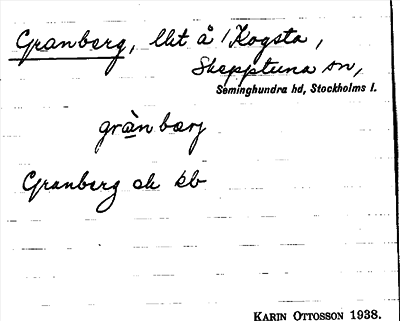 Granberg, lht å 1/Kogsta,
Skepptuna sn,
Seminghundra hd, Stockholms l.
gràn bærj
Granberg ek kb
KARIN OTTOSSON 1938.